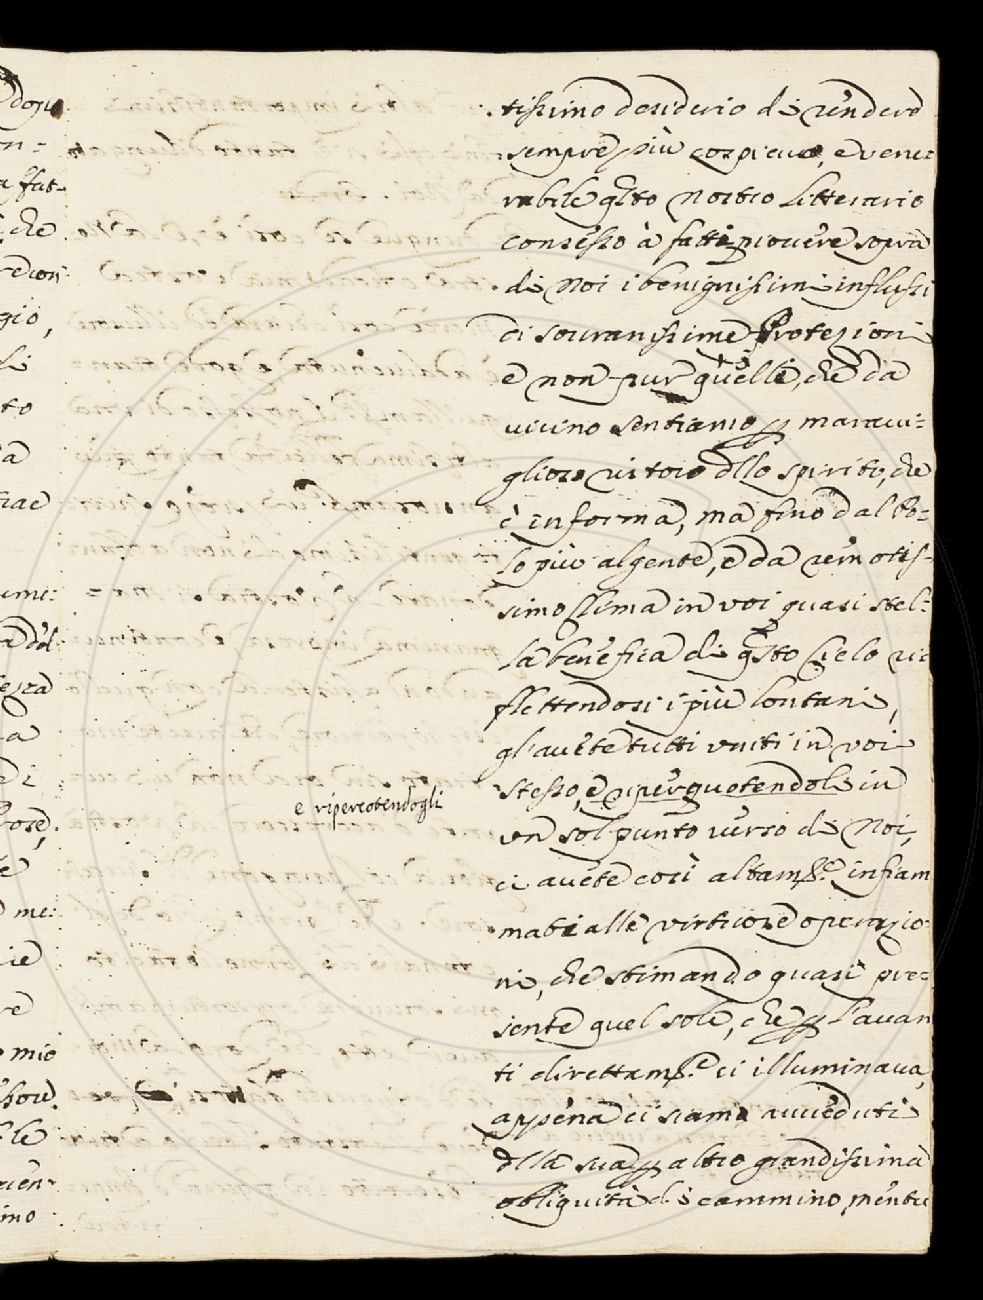 tissimo desiderio di render
sempre più cospicuo, e vene=
rabile qsto nostro litterario
consesso à fatti piovere sopra
di Noi i benignissimi influssi
di sovranissime Protezioni
e non pur quelle, che da
vicino sentiamo p maravi=
glioso ristoro dllo spirito, che
è informa, ma fino dal Po=
lo più algente, e da remotis=
simo Clima in voi quasi stel=
la benefica di qsto Cielo ri=
flettendosi i più lontani,
gl'avete tutti uniti in voi
stesso, e riperquotendoli in
e ripercotendogli
un sol punto verso di Noi,
ci avete così altamte infiam
mati alle virtuose operazio=
ni, che stimando quasi pre=
sente quel sole, che p l'avan
ti direttamte ci illuminava,
appena ci siamo avveduti
dlla sua p altro grandissima
obliquità di cammino, mentre
dopo
on=
a fat=
che
gio,
li
to
a
umi:
a
di
rose,
e
me:
re
mio
le
ven=
ino